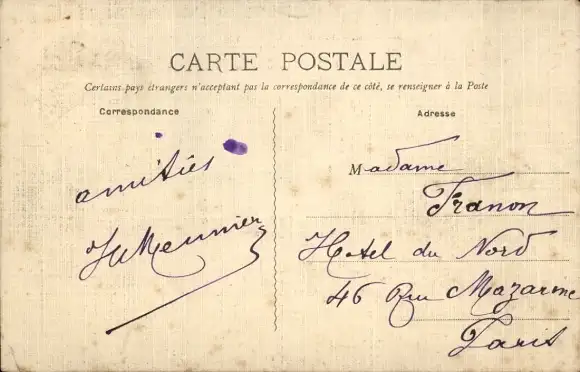 CARTE POSTALE
Certains pays étrangers n'acceptant pas la correspondance de ce côté, se renseigner à la Poste
Correspondance
amitiés
Meunier
Adresse
Madame
Franon
Hotel du Nord
46 Rue Mazarine
Paris